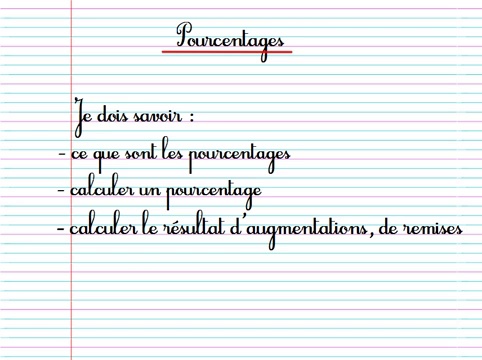 Pourcentages
Je dois savoir :
- ce que sont les pourcentages
- calculer un pourcentage
- calculer le résultat d'augmentations, de remises